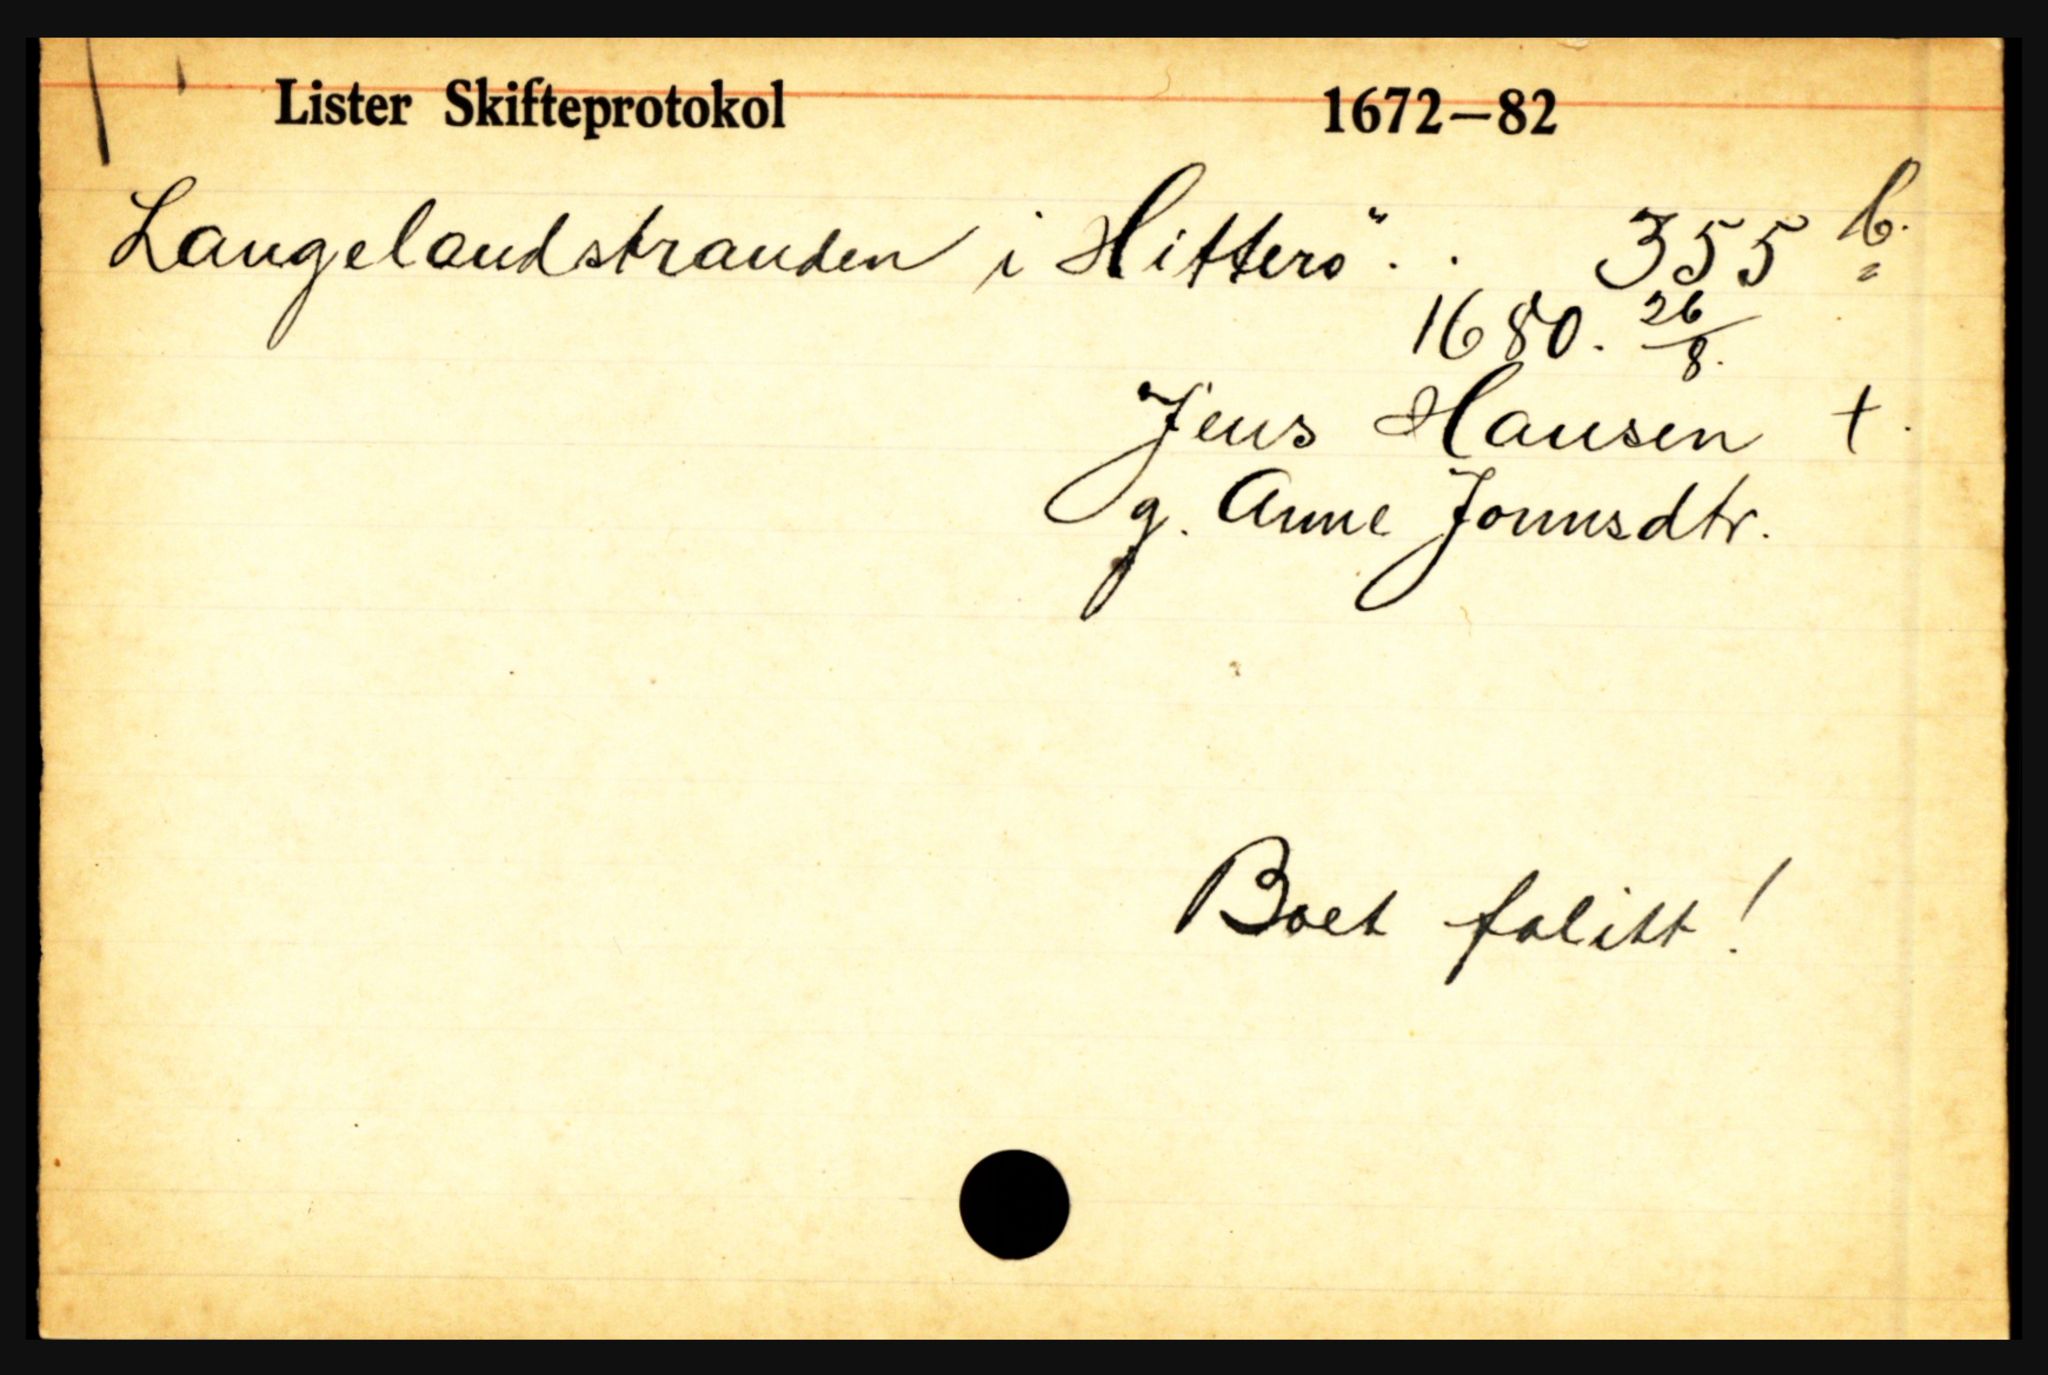 Lister Skifteprotokol 1672—82
Langelandstranden i Hitterö . . 355 b.
1680. 26/8.
Jens Hansen †.
g. Anne Jonnsdtr.
Boet falitt!